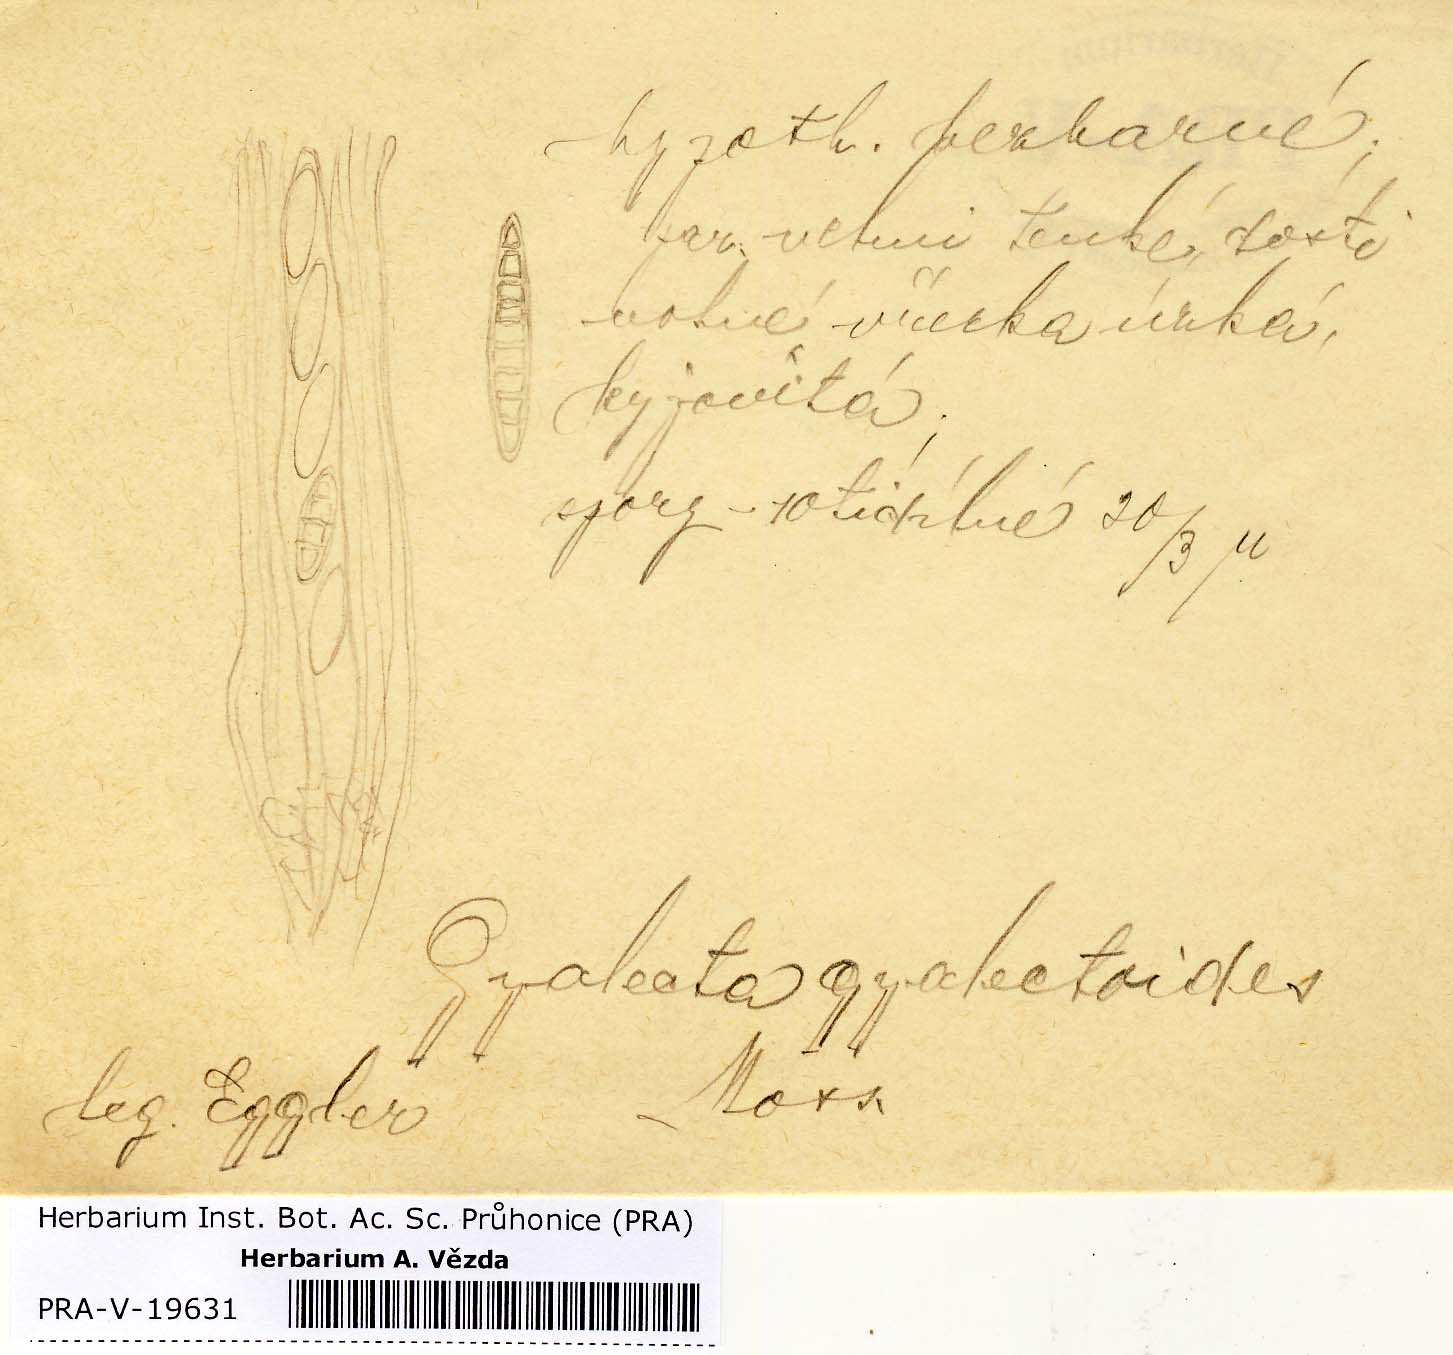 hypoth. bezbarvé,
par. velmi tenké, dosti
volné vřecka úzká,
kyjovitá,
spory - 10tidílné 20/3 µ
Gyalecta gyalectoides
leg. Eggler
Herbarium Inst. Bot. Ac. Sc. Průhonice (PRA)
Herbarium A. Vězda
PRA-V-19631